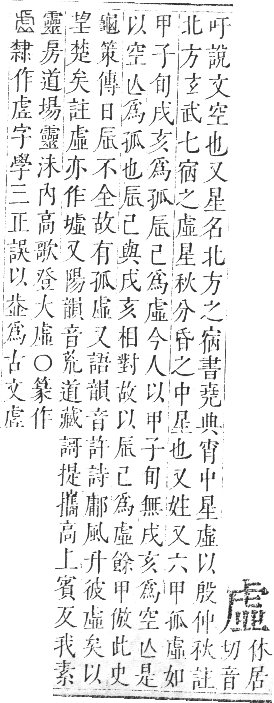 虛
休居
切音
吁說文空也又星名北方之宿書堯典宵中星虛以殷仲秋註
北方玄武七宿之虛星秋分昏之中星也又姓又六甲孤虛如
甲子旬戌亥爲孤辰已爲虛今人以甲子旬無戌亥爲空亾是
以空亾爲孤也辰已與戌亥相對故以辰已爲虛餘甲倣此史
龜策傳日辰不全故有孤虛又語韻音許詩鄘風升彼虛矣以
望楚矣註虛亦作墟又陽韻音荒道藏謌提攜高上賓友我素
靈房道場靈沬內高歌登大虛○篆作
虗隸作虛字學三正誤以𠀉爲古文虛